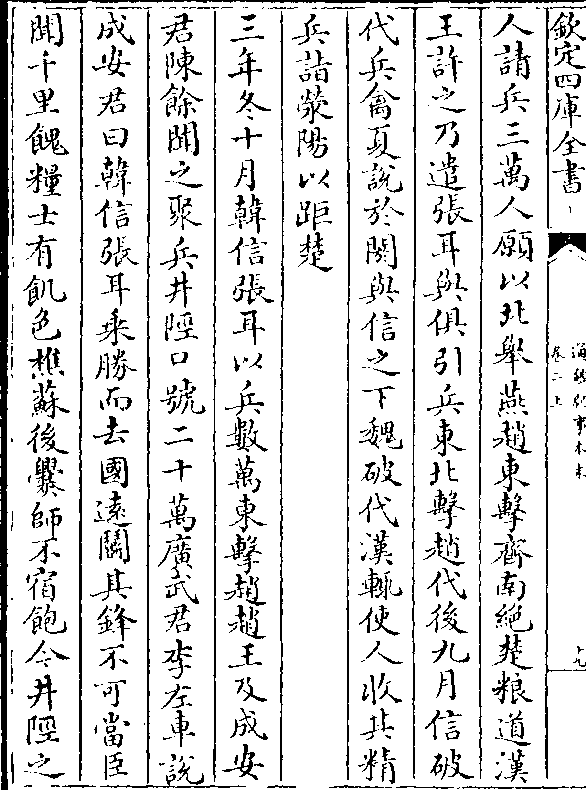 欽定四庫全書
通鑑紀事本末
卷二上
十九
人請兵三萬人願以北舉燕趙東擊齊南絕楚粮道漢
王許之乃遣張耳與俱引兵東北擊趙代後九月信破
代兵禽夏說於閼與信之下魏破代漢輒使人收其精
兵詣滎陽以距楚
三年冬十月韓信張耳以兵數萬東擊趙趙王及成安
君陳餘聞之聚兵井陘口號二十萬廣武君李左車說
成安君曰韓信張耳乘勝而去國遠鬭其鋒不可當臣
聞千里餽糧士有飢色樵蘇後爨師不宿飽今井陘之